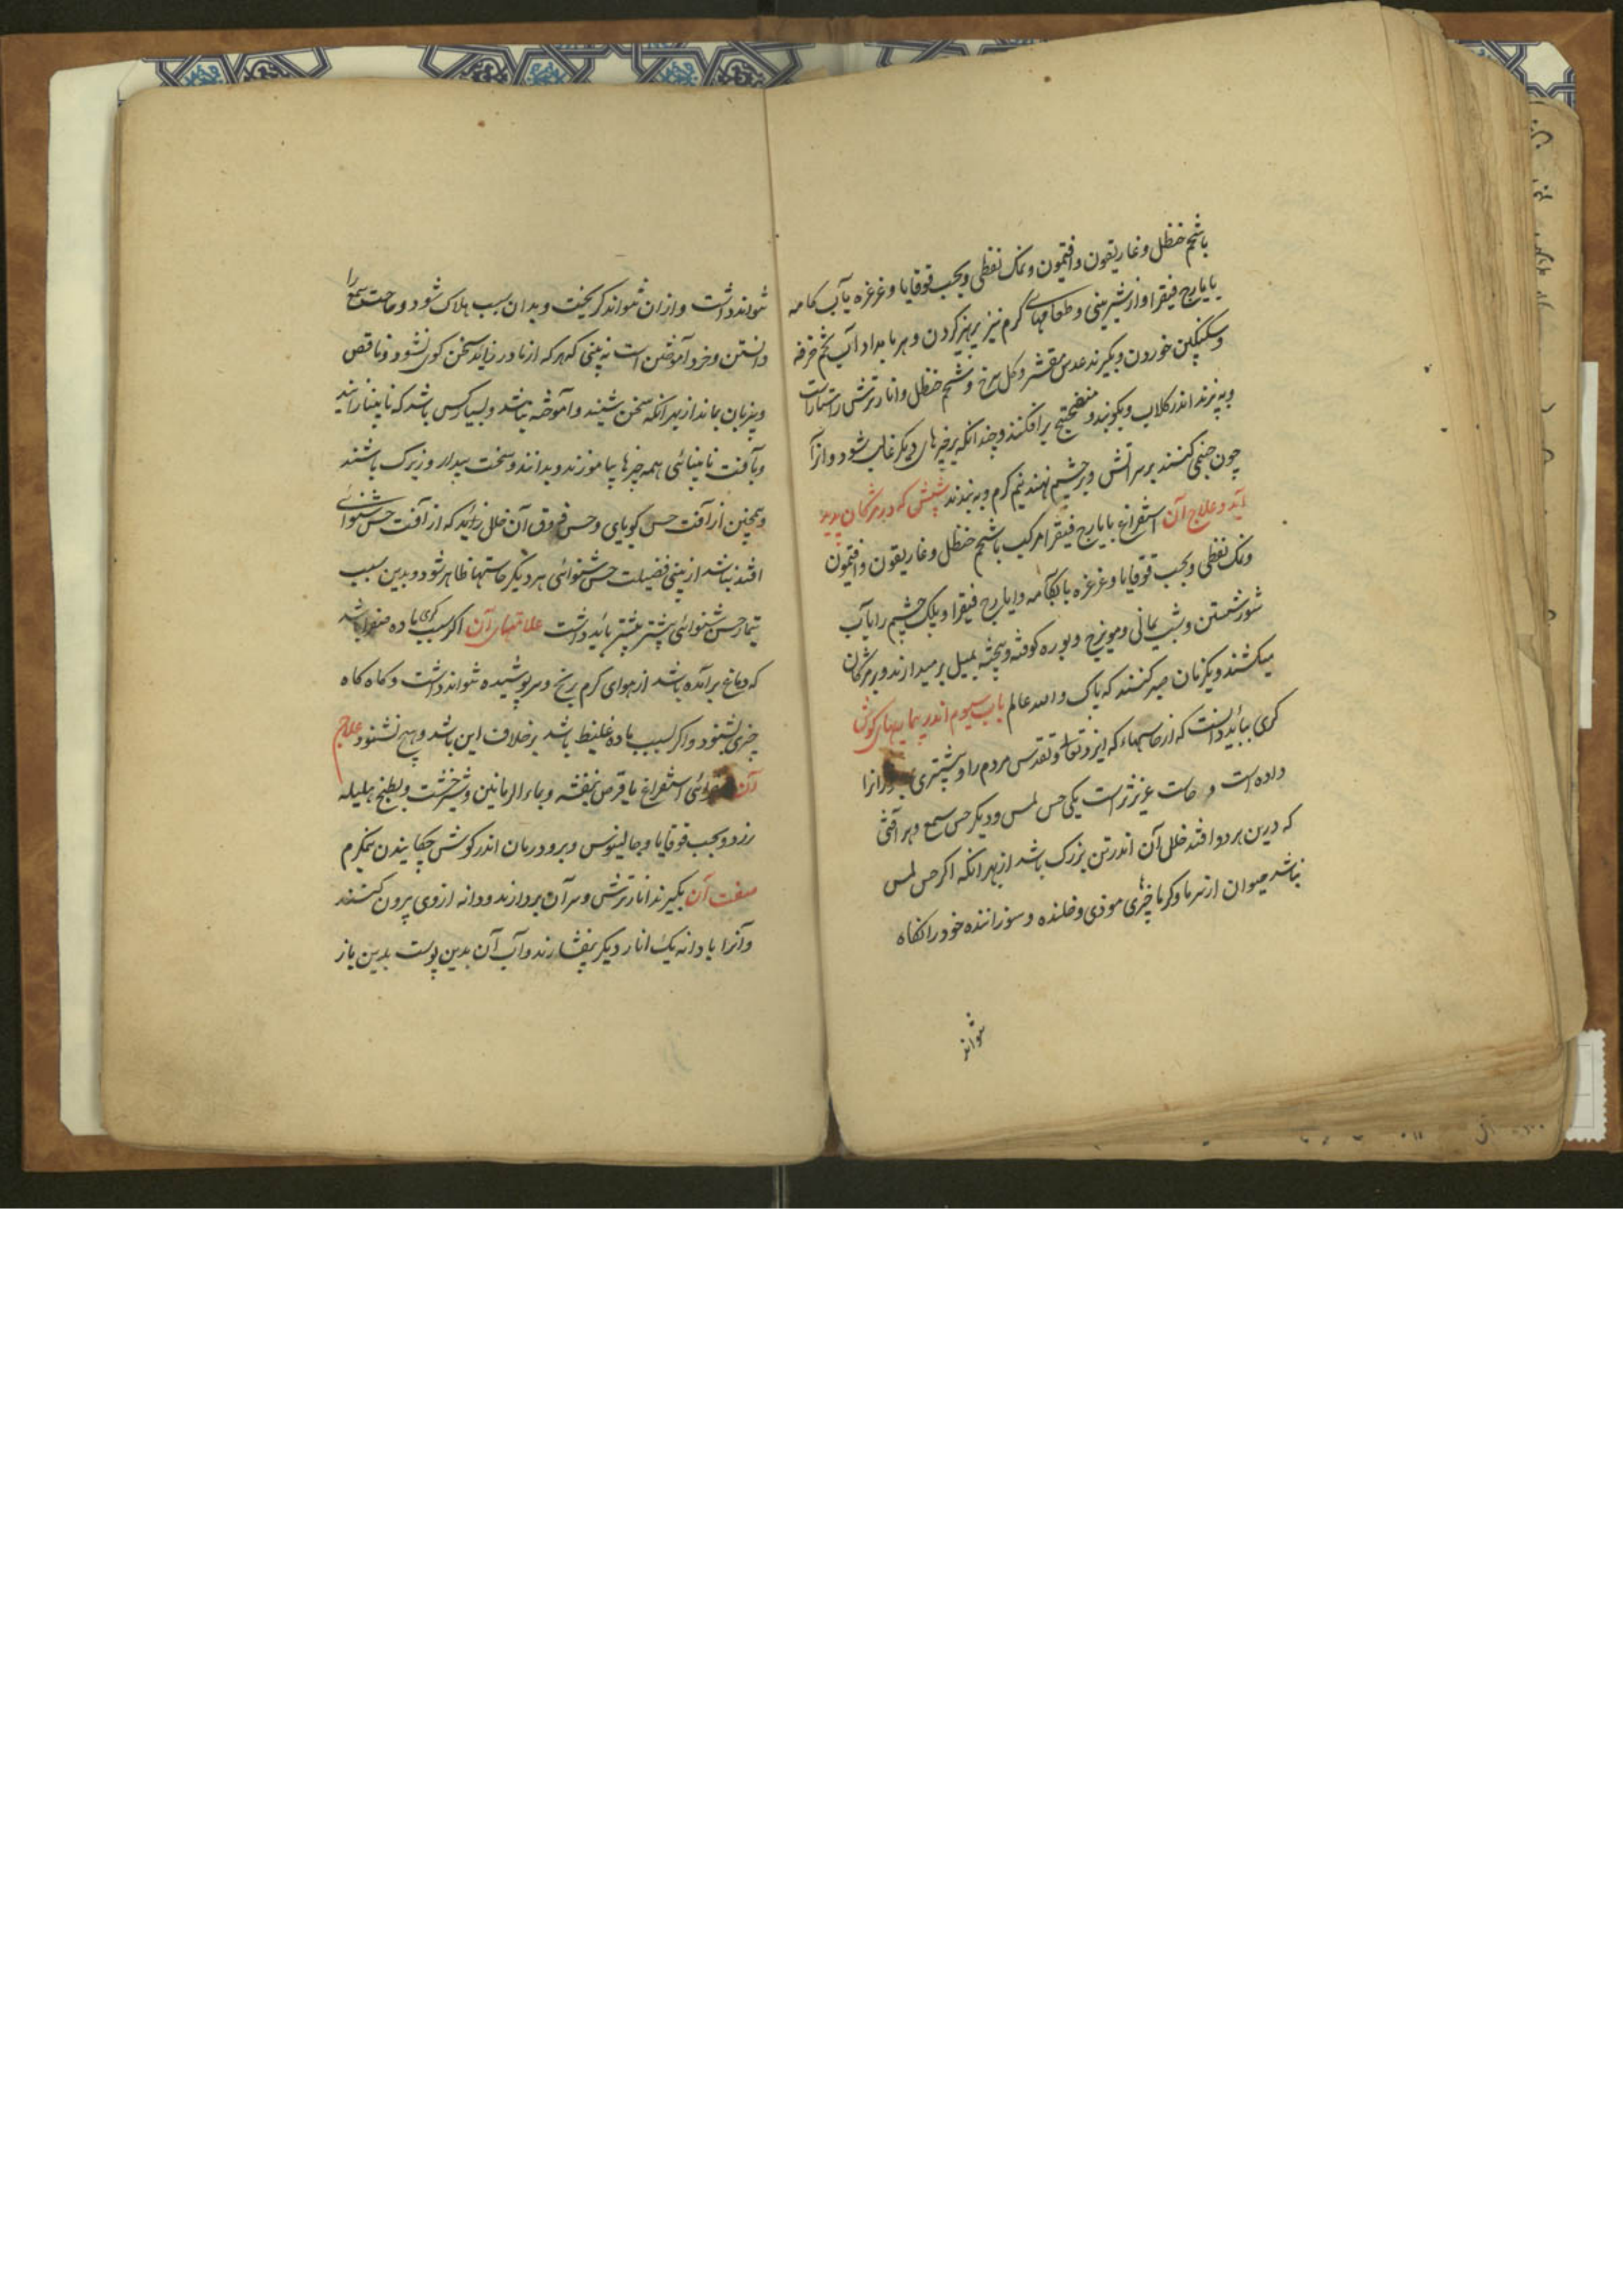 باشحم حنظل و غاریقون و افتیمون و نمک نفطی و بحب قوقایا و غرغره بآب کامه
بایارج فیقرا و از شیرینی و طعامهای گرم نیز پرهیز کردن و هر بامداد آب تخم خرفه
و سکنکبین خوردن و بگیرند عدس مقشر و کل سرخ و شحم حنظل و انار ترش راستاراست
و بپزند اندر کلاب و بکوبند و برافکنند و چندانکه بر چیزهای دیگر غالب شود و از آن
چون کنند بر سر آتش و بر چشم نهند نیم کرم و به بندند شپش که در مژکان پدید
آید و علاج آن استفراغ بایارج فیقرا مرکب باشحم حنظل و غاریقون و افتیمون
و نمک نفطی و بحب قوقایا و غرغره بابکامه و ایارج فیقرا و پلک چشم را بآب
شور شستن و شب یمانی و مویزج و بوره کوفته و پخته بمیل برمیدارند و بر مژکان
میکشند و یکزمان صبر کنند که پاک و الله عالم باب سیوم اندر بیماریهای کوش
کری بباید دانست که از حاستهاء که ایزد تعالی و تقدس مردم را و بیشتری را
داده است دو حاست عزیزتر است یکی حس لمس و دیکر حس سمع و هر آفتی
که درین هر دو افتد خلل آن اندر تن بزرک باشد از بهر آنکه اکر حس لمس
نباشد حیوان از سرما و کرما و چیزهای موذی و خلنده و سوزاننده خود را نکاه
نتواند
نتواند داشت و از آن نتواند کریخت و بدان سبب هلاک شود و حاست سمع را
دانستن و خرد آموختن است نه بینی که هر که از مادر زاید سخن کوی نشود و ناقص
و بیزبان بماند از بهر آنکه سخن نشنیند و آموخته نباشد و بسیار کس باشد که نابینا زایند
و با آفت نابینائی همه چیزها بیاموزند و بدانند و سخت بیدار و زیرک باشند
و همچنین از آفت حس کویای و حس ذوق آن خلل نزاید که از آفت حس شنوائی
افتد نباشد ازینی فضیلت حس شنوائی هر دیکر حاستها ظاهر شود و بدین سبب
تیمار حس شنوائی بیشتر باید داشت علامتهای آن اکر سبب کری ماده صفرا باشد
که دماغ برآمده باشد از هوای کرم برنج و سر پوشیده نتواند داشت و کاه کاه
چیزی بشنود و اکر بسبب ماده غلیظ باشد برخلاف این باشد و هیچ نشنود علاج
آن استفراغ با قرص بنفشه و بماء الرمانین و شیرخشت و بطبخ هلیله
زرد و بحب قوقایا و جالینوس و برود رمان اندر کوش چکانیدن نیمکرم
صفت آن بکیرند انار ترش و سر آن بردارند و دانه از وی بیرون کنند
و آنرا با دانه یک انار دیکر بیفشارند و آب آن بدین پوست بدین باز